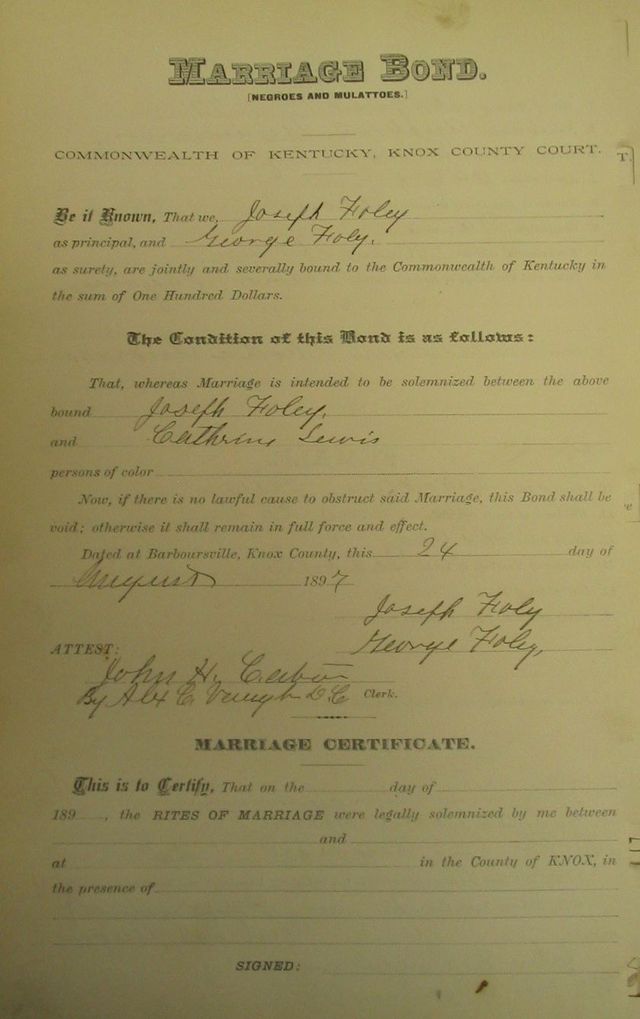 MARRIAGE BOND.
[NEGROES AND MULATTOES.]
COMMONWEALTH OF KENTUCKY, KNOX COUNTY COURT.
T.
Be it Known, That we, Joseph Foley
as principal, and George Foly.
as surety, are jointly and severally bound to the Commonwealth of Kentucky in
the sum of One Hundred Dollars.
The Condition of this Bond is as follows:
That, whereas Marriage is intended to be solemnized between the above
bound Joseph Foley.
and Cathrine Lewis
persons of color
Now, if there is no lawful cause to obstruct said Marriage, this Bond shall be
void; otherwise it shall remain in full force and effect.
Dated at Barboursville, Knox County, this 24 day of
August 1897
Joseph Foly
ATTEST: George Foley,
John H.
By Alex C. D.C Clerk.
MARRIAGE CERTIFICATE.
This is to Certify, That on the day of
189 , the RITES OF MARRIAGE were legally solemnized by me between
and
at in the County of KNOX, in
the presence of
SIGNED: